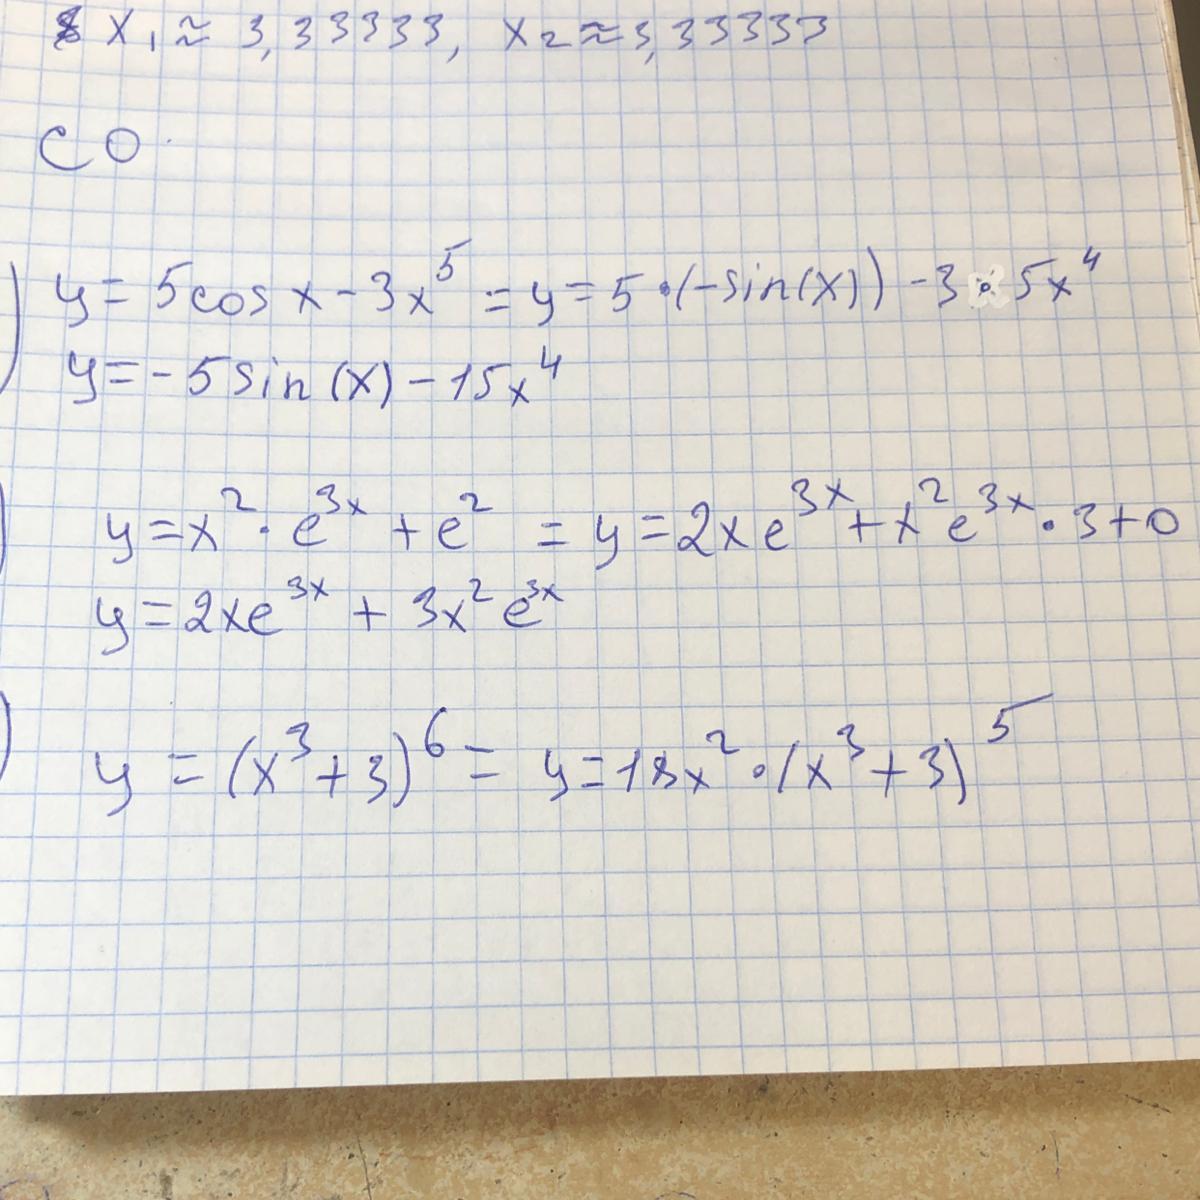 x₁ ≈ 3,33333, x₂ ≈ 3,33333
CO
) y = 5cos x - 3x⁵ = y = 5 · (-sin(x)) - 3 · 5x⁴
y = -5sin(x) - 15x⁴
) y = x² · e³ˣ + e² = y = 2xe³ˣ + x²e³ˣ · 3 + 0
y = 2xe³ˣ + 3x²e³ˣ
) y = (x³ + 3)⁶ = y = 18x² · (x³ + 3)⁵